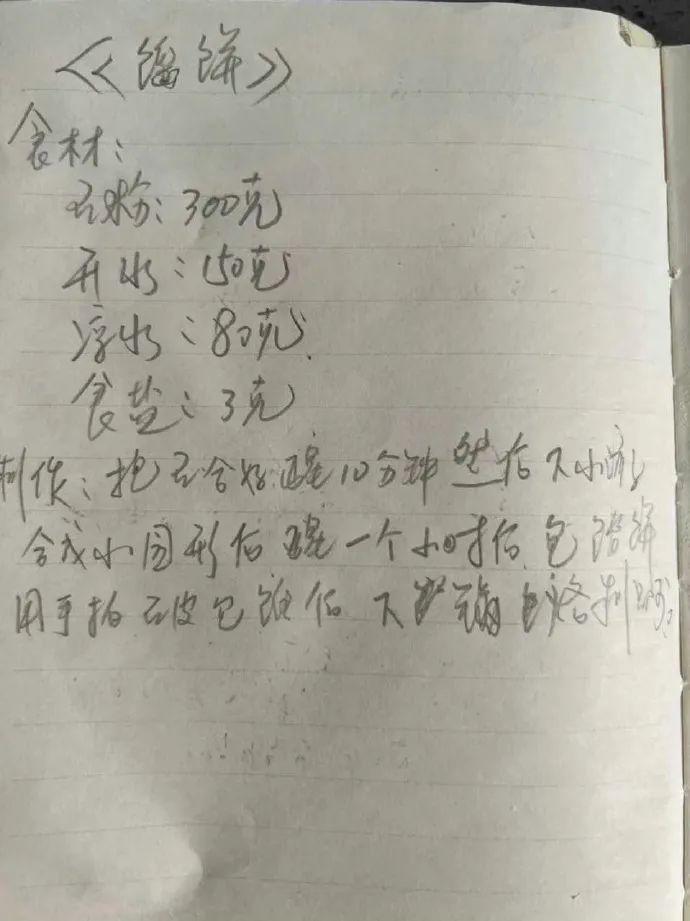 《馅饼》
食材：
面粉：300克
开水：150克
凉水：80克
食盐：3克
制作：把面合好醒10分钟然后下小剂
合成小园形后醒一个小时后包馅饼
用手拍面皮包馅后下锅烙制